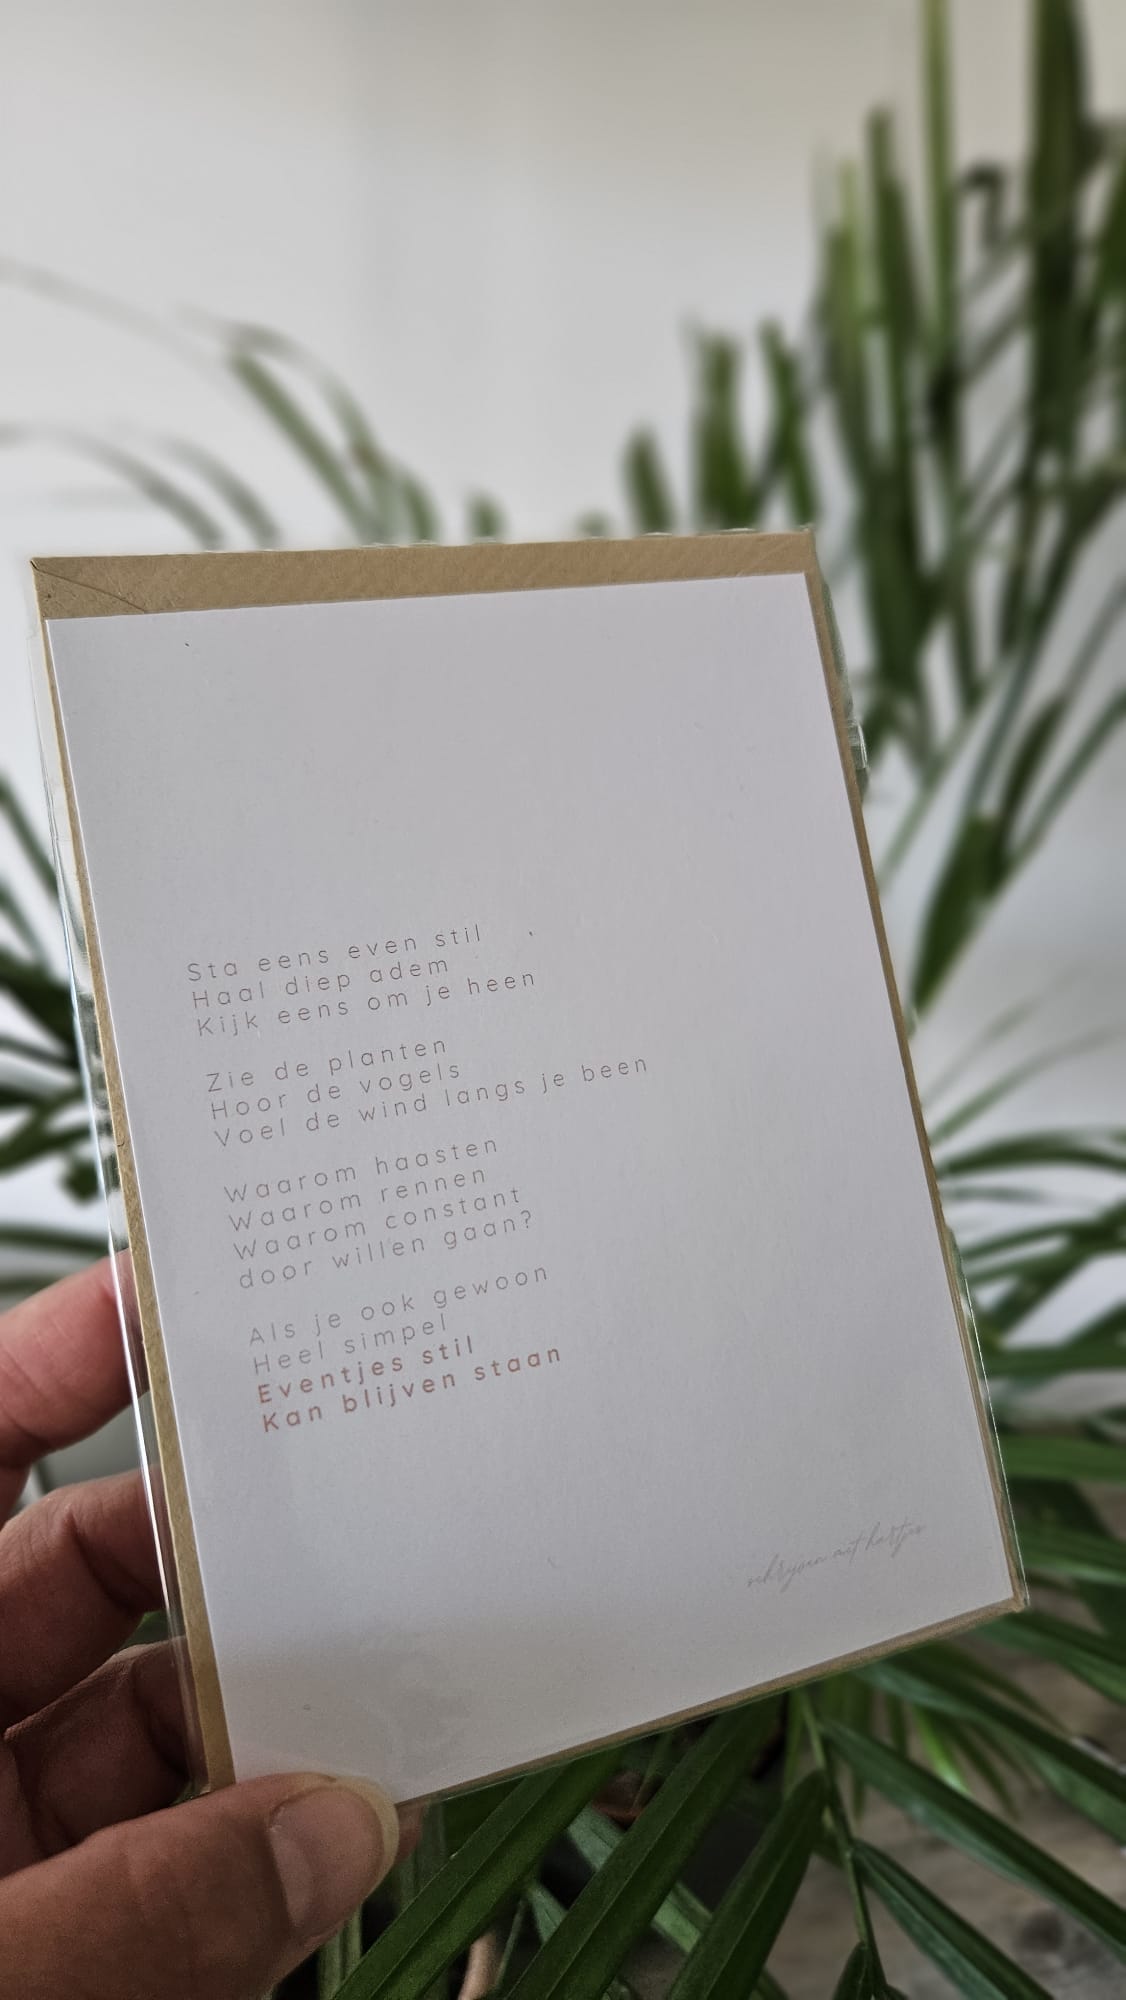 Sta eens even stil
Haal diep adem
Kijk eens om je heen
Zie de planten
Hoor de vogels
Voel de wind langs je been
Waarom haasten
Waarom rennen
Waarom constant
door willen gaan?
Als je ook gewoon
Heel simpel
Eventjes stil
Kan blijven staan